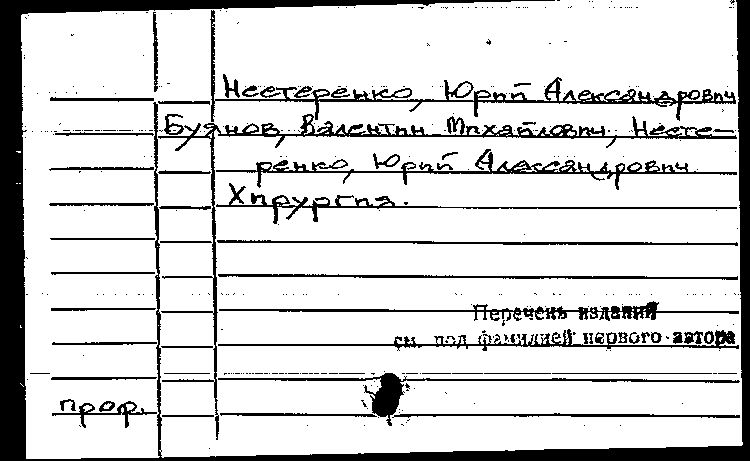 Нестеренко, Юрий Александрович
Буянов, Валентин Михайлович, Несте-
ренко, Юрий Александрович
Хирургия.
Перечень изданий
см. под фамилией первого автора
проф.